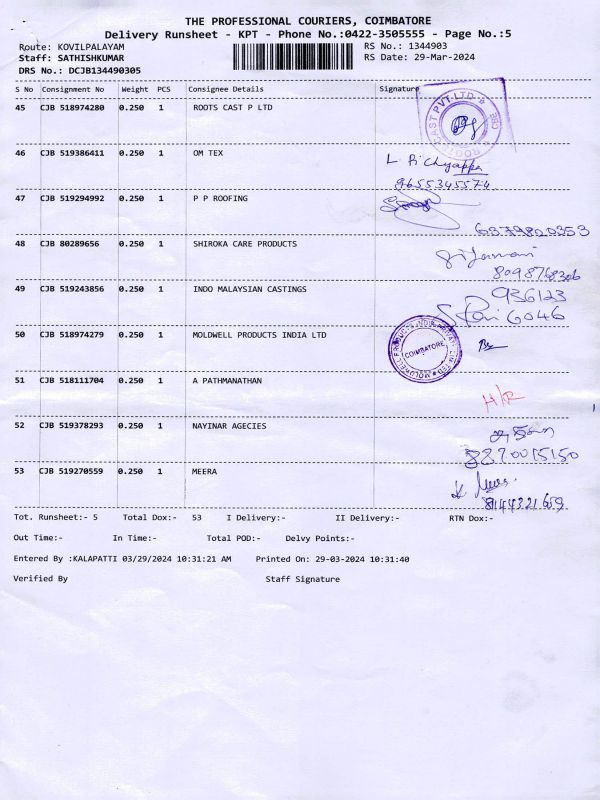 THE PROFESSIONAL COURIERS, COIMBATORE
Delivery Runsheet - KPT - Phone No.:0422-3505555 - Page No.:5
Route: KOVILPALAYAM RS No.: 1344903
Staff: SATHISHKUMAR RS Date: 29-Mar-2024
DRS No.: DCJB134490305
S No Consignment No Weight PCS Consignee Details Signature
45 CJB 518974280 0.250 1 ROOTS CAST P LTD
ROOTS CAST PVT LTD CBE
46 CJB 519386411 0.250 1 OM TEX
9655345574
47 CJB 519294992 0.250 1 P P ROOFING
6379820353
48 CJB 80289656 0.250 1 SHIROKA CARE PRODUCTS
8098768306
49 CJB 519243856 0.250 1 INDO MALAYSIAN CASTINGS
936123
6046
50 CJB 518974279 0.250 1 MOLDWELL PRODUCTS INDIA LTD
MOLDWELL PRODUCTS INDIA PRIVATE LIMITED
COIMBATORE
51 CJB 518111704 0.250 1 A PATHMANATHAN
52 CJB 519378293 0.250 1 NAYINAR AGECIES
8270015150
53 CJB 519270559 0.250 1 MEERA
8144321659
Tot. Runsheet:- 5 Total Dox:- 53 I Delivery:- II Delivery:- RTN Dox:-
Out Time:- In Time:- Total POD:- Delvy Points:-
Entered By :KALAPATTI 03/29/2024 10:31:21 AM Printed On: 29-03-2024 10:31:40
Verified By Staff Signature